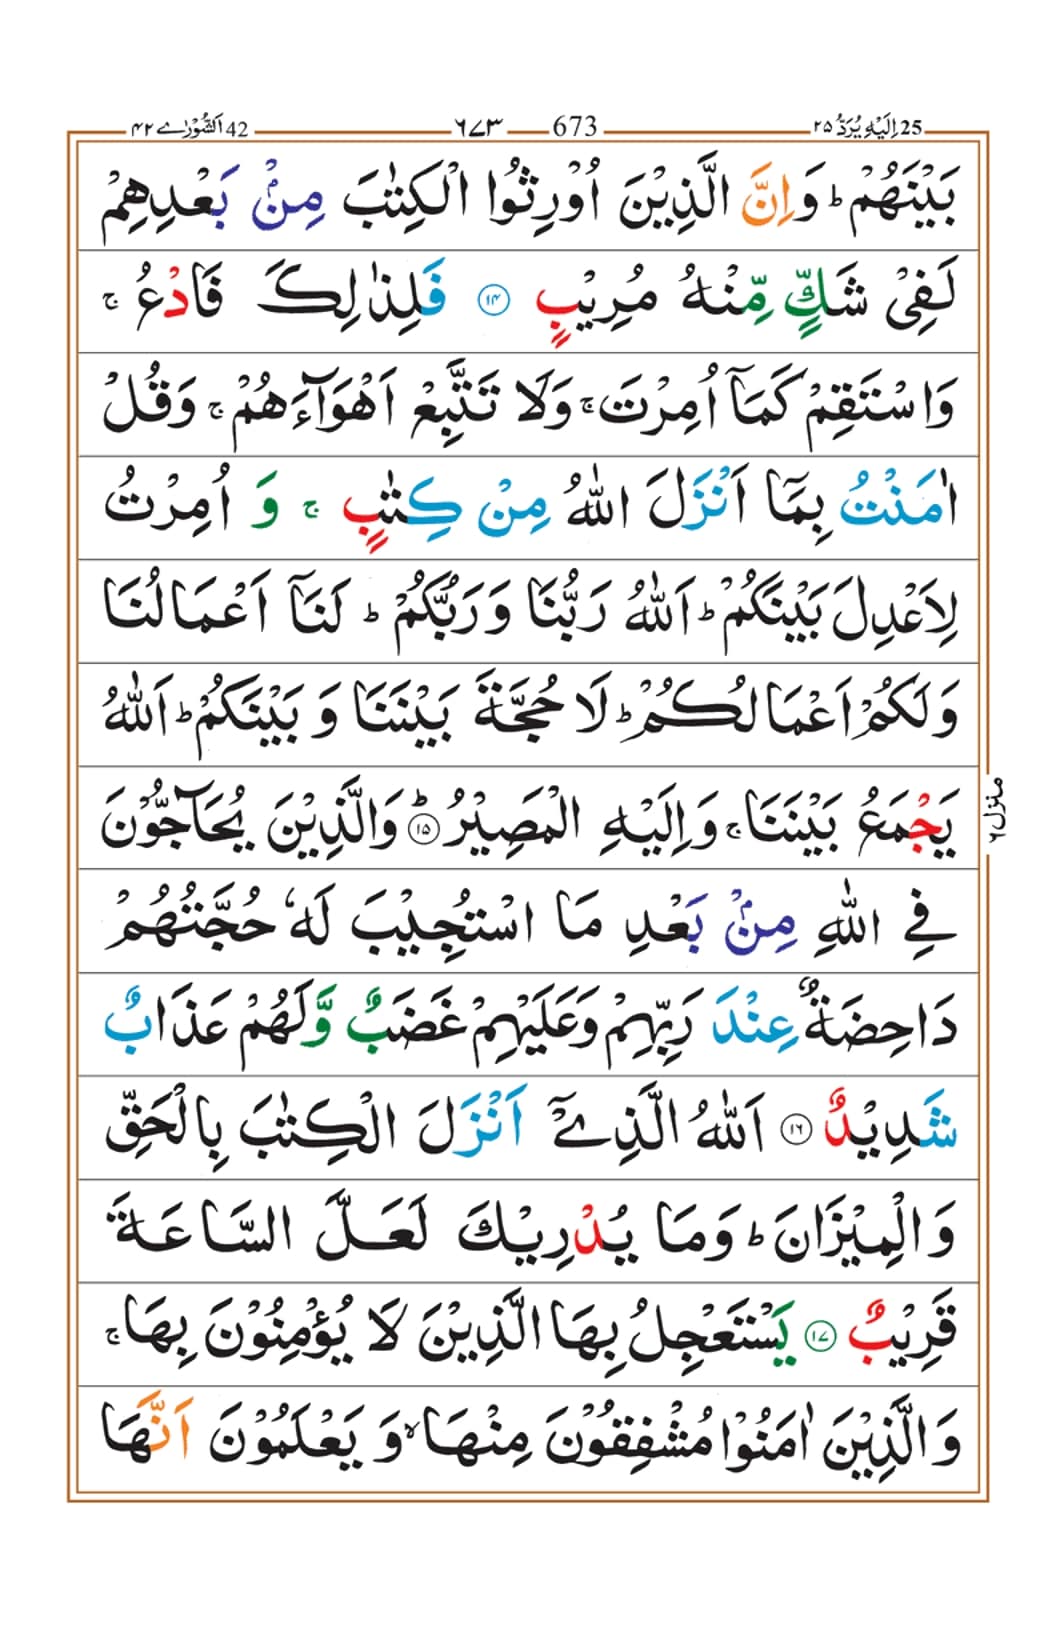 25 اِلَیْهِ یُرَدُّ ۲۵ 673 ٦٧٣ 42 اَلشُّوْرٰی ۴۲
بَیْنَهُمْ ؕ وَ اِنَّ الَّذِیْنَ اُوْرِثُوا الْكِتٰبَ مِنْۢ بَعْدِهِمْ
لَفِیْ شَكٍّ مِّنْهُ مُرِیْبٍ ۱۴ فَلِذٰلِكَ فَادْعُ ۚ
وَاسْتَقِمْ كَمَاۤ اُمِرْتَ ۚ وَلَا تَتَّبِعْ اَهْوَآءَهُمْ ۚ وَقُلْ
اٰمَنْتُ بِمَاۤ اَنْزَلَ اللّٰهُ مِنْ كِتٰبٍ ۚ وَ اُمِرْتُ
لِاَعْدِلَ بَیْنَكُمْ ؕ اَللّٰهُ رَبُّنَا وَ رَبُّكُمْ ؕ لَنَاۤ اَعْمَالُنَا
وَ لَكُمْ اَعْمَالُكُمْ ؕ لَا حُجَّةَ بَیْنَنَا وَ بَیْنَكُمْ ؕ اَللّٰهُ
یَجْمَعُ بَیْنَنَا ۚ وَاِلَیْهِ الْمَصِیْرُ ؕ ۱۵ وَالَّذِیْنَ یُحَآجُّوْنَ
فِی اللّٰهِ مِنْۢ بَعْدِ مَا اسْتُجِیْبَ لَهٗ حُجَّتُهُمْ
دَاحِضَةٌ عِنْدَ رَبِّهِمْ وَعَلَیْهِمْ غَضَبٌ وَّلَهُمْ عَذَابٌ
شَدِیْدٌ ۱۶ اَللّٰهُ الَّذِیْۤ اَنْزَلَ الْكِتٰبَ بِالْحَقِّ
وَ الْمِیْزَانَ ؕ وَمَا یُدْرِیْكَ لَعَلَّ السَّاعَةَ
قَرِیْبٌ ۱۷ یَسْتَعْجِلُ بِهَا الَّذِیْنَ لَا یُؤْمِنُوْنَ بِهَا ۚ
وَ الَّذِیْنَ اٰمَنُوْا مُشْفِقُوْنَ مِنْهَا ۙ وَ یَعْلَمُوْنَ اَنَّهَا
منزل ٦